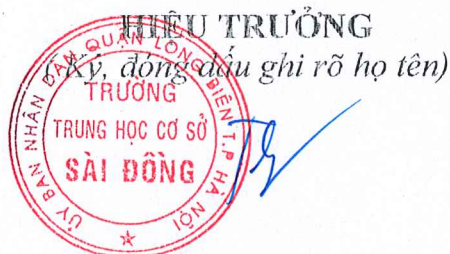 HIỆU TRƯỞNG
( Ký, đóng dấu ghi rõ họ tên)
ỦY BAN NHÂN DÂN QUẬN LONG BIÊN T.P HÀ NỘI
TRƯỜNG
TRUNG HỌC CƠ SỞ
SÀI ĐỒNG